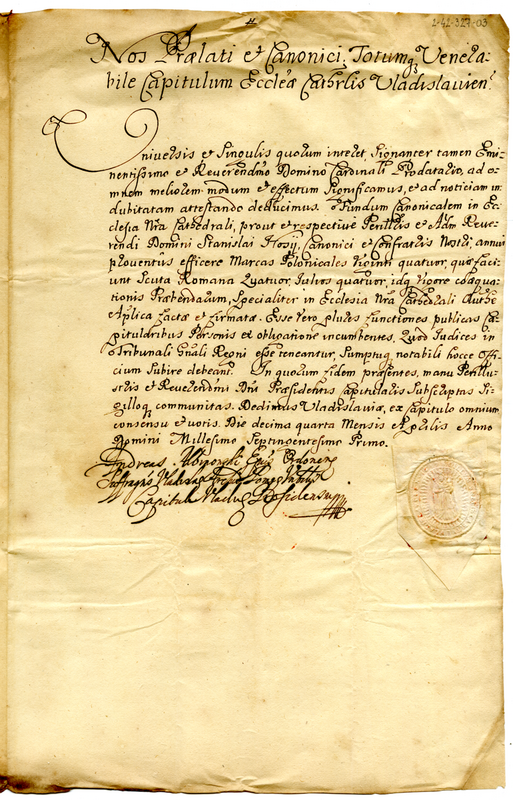 1-41-327-03
Nos Prælati et Canonici, Totumq; Venera-
bile Capitulum Eccleæ Cathrlis Vladislavien.
Universis et Singulis quorum interest, Signanter tamen Emi-
nentissimo et Reverendmo Domino Cardinali Prodatario, ad o-
mnem meliorem modum et effectum Significamus, et ad noticiam in-
dubitatam attestando deducimus. Fundum Canonicalem in Ec-
clesia Nra Cathedrali, prout et respective Perillris et Adm Reve-
rendi Domini Stanislai Hosij, Canonici et Confratris Nostri, annui
proventus efficere Marcas Polonicales Viginti quatuor, quæ faci-
unt Scuta Romana Quatuor, Iulios quatuor, idq; vigore coæqua-
tionis Præbendarum, Specialiter in Ecclesia Nra Cathedrali Authte
Aplica factæ et firmatæ. Esse vero plures functiones publicas Ca-
pitularibus Personis ex obligatione incumbentes, Quod Iudices in
Tribunali Gnali Regni esse teneantur, Sumptuq; notabili hocce Offi-
cium Subire debeant. In quorum fidem præsentes, manu Perillu-
stris et Reverendmi Dni Præsidentis Capitularis Subscriptas Si-
gilloq; communitas. Dedimus Vladislaviæ, ex Capitulo omnium
consensu et votis. Die decima quarta Mensis Aprilis Anno
Domini Millesimo Septingentesimo Primo.
Andreas
Capituli Præsidens mpp